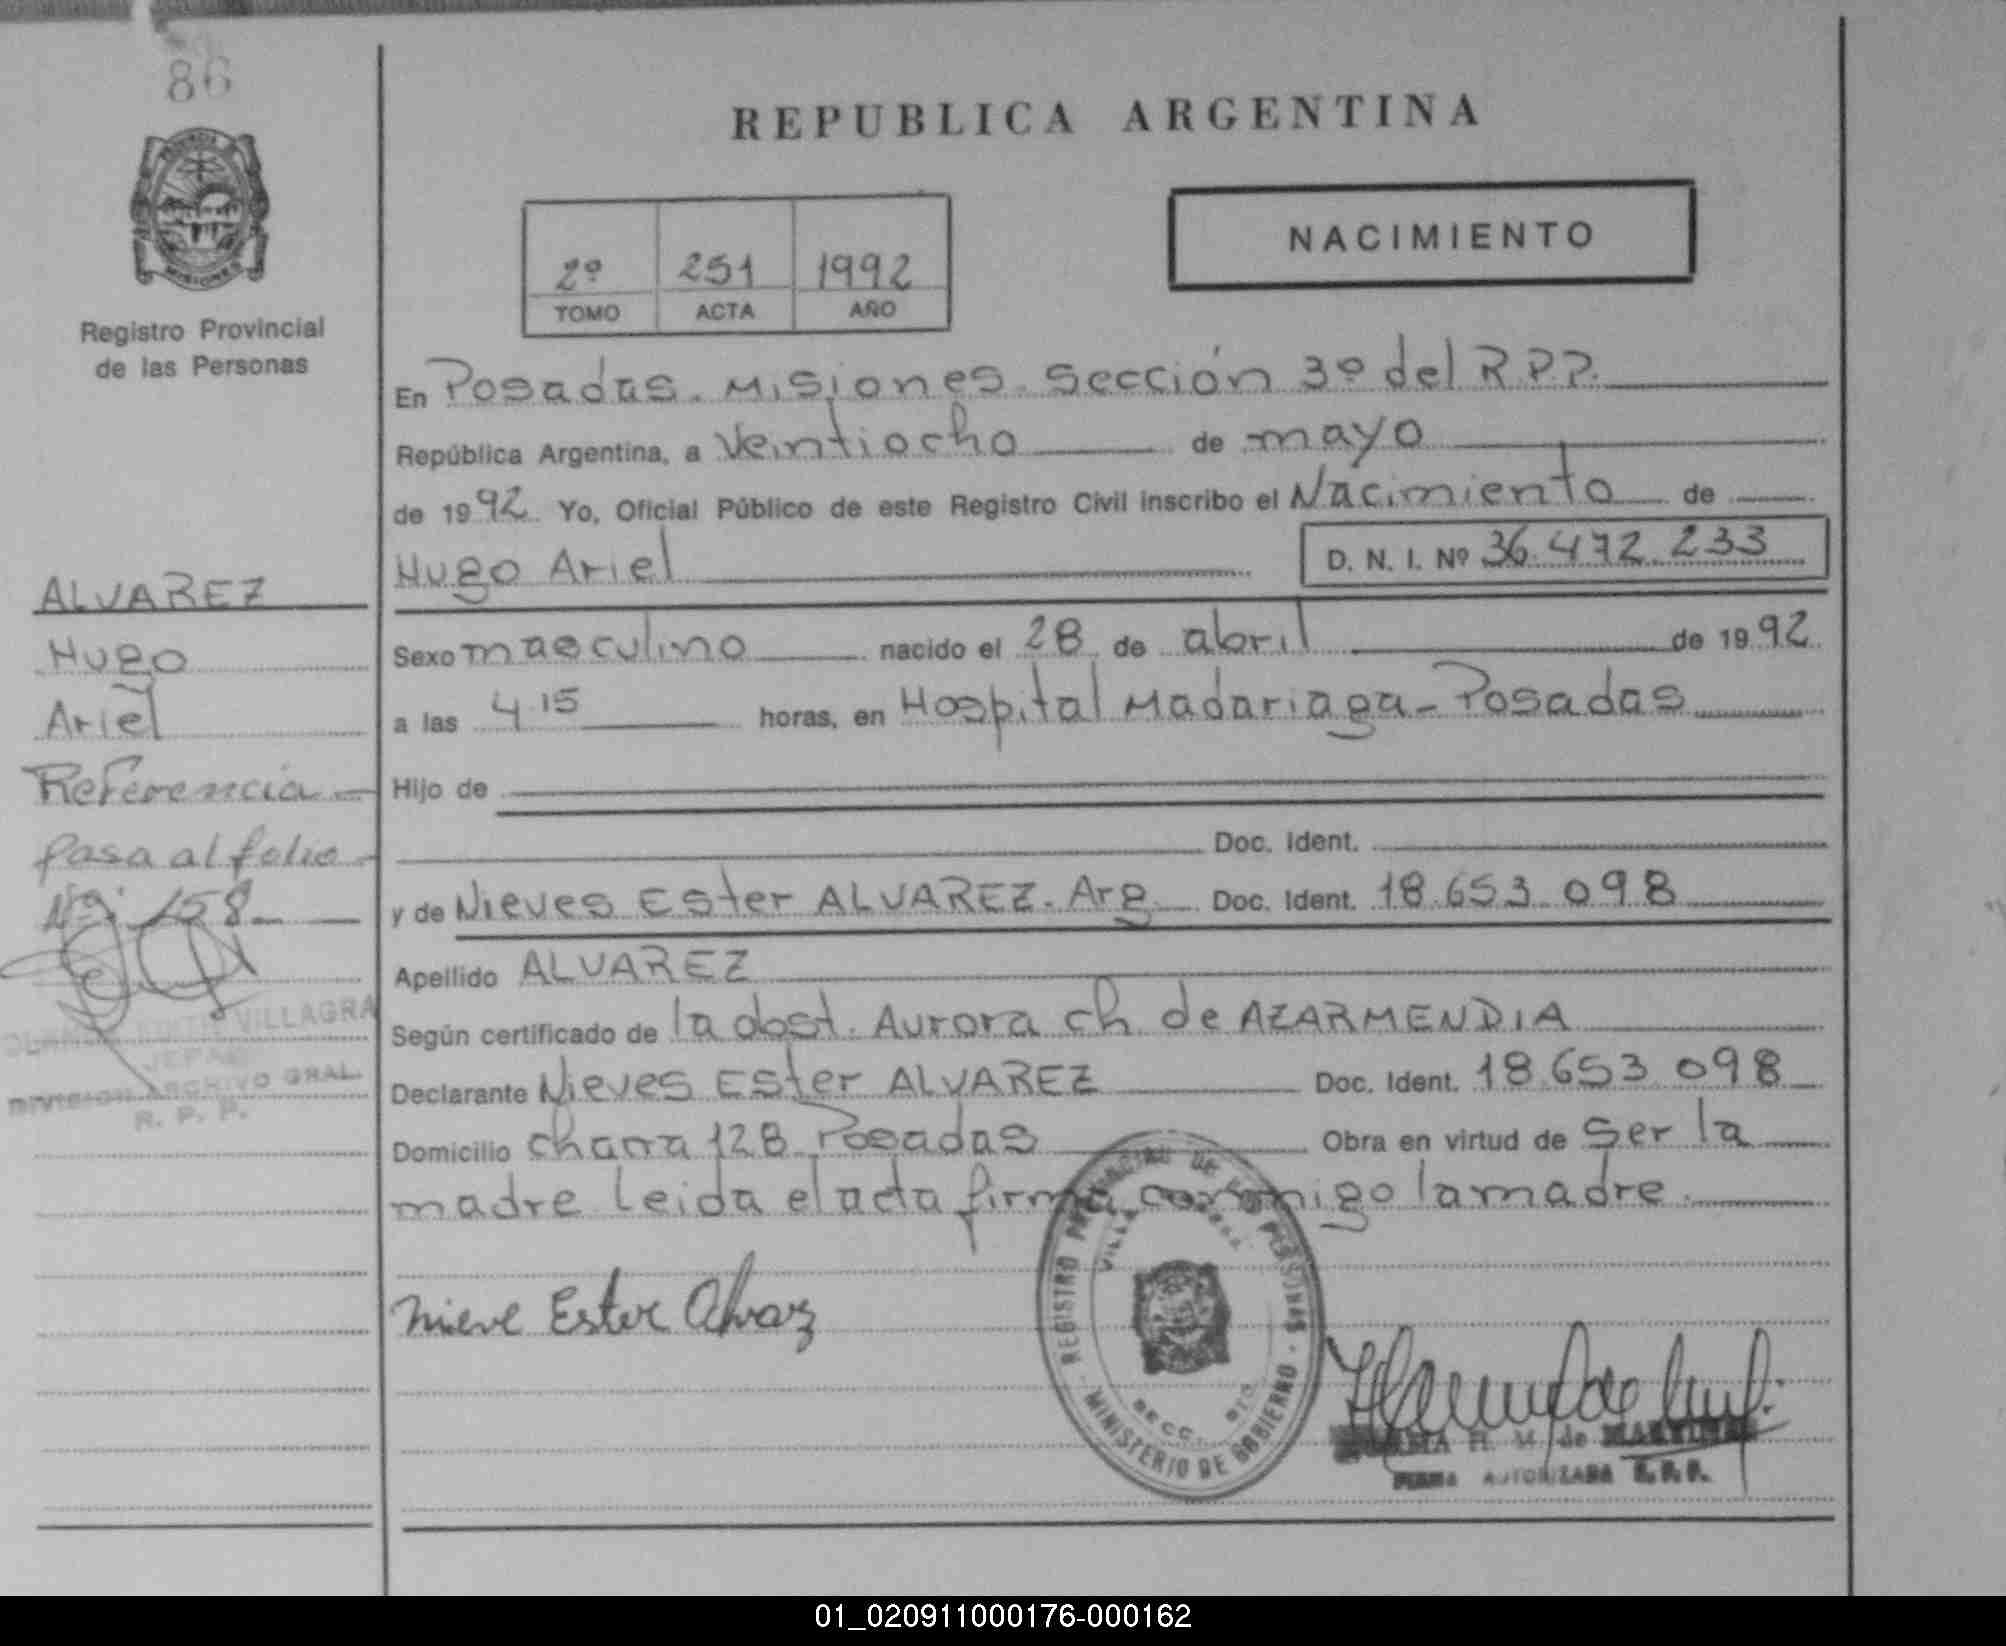 86
REPUBLICA ARGENTINA
Registro Provincial
de las Personas
2º 251 1992
TOMO ACTA AÑO
NACIMIENTO
En Posadas. Misiones. Sección 3º del R.P.P.
República Argentina, a Veintiocho de mayo
de 1992. Yo, Oficial Público de este Registro Civil inscribo el Nacimiento de
Hugo Ariel D. N. I. Nº 36.472.233
Sexo masculino nacido el 28 de abril de 1992.
a las 4.15 horas, en Hospital Madariaga - Posadas
Hijo de
Doc. Ident.
y de Nieves Ester ALVAREZ. Arg. Doc. Ident. 18.653.098
Apellido ALVAREZ
Según certificado de la obst. Aurora ch de AZARMENDIA
Declarante Nieves Ester ALVAREZ Doc. Ident. 18.653.098
Domicilio chacra 128 Posadas Obra en virtud de ser la
madre leida el acta firma conmigo la madre.
Nieve Ester Alvarez
ALVAREZ
Hugo
Ariel
Referencia
pasa al folio
Nº: 158
EDITH VILLAGRA
JEFA
DIVISION ARCHIVO GRAL.
R. P. P.
REGISTRO PROVINCIAL DE LAS PERSONAS
VILLA
SECC.
MINISTERIO DE GOBIERNO
H. M. de MARTINEZ
FIRMA AUTORIZADA R.P.P.
01_020911000176-000162